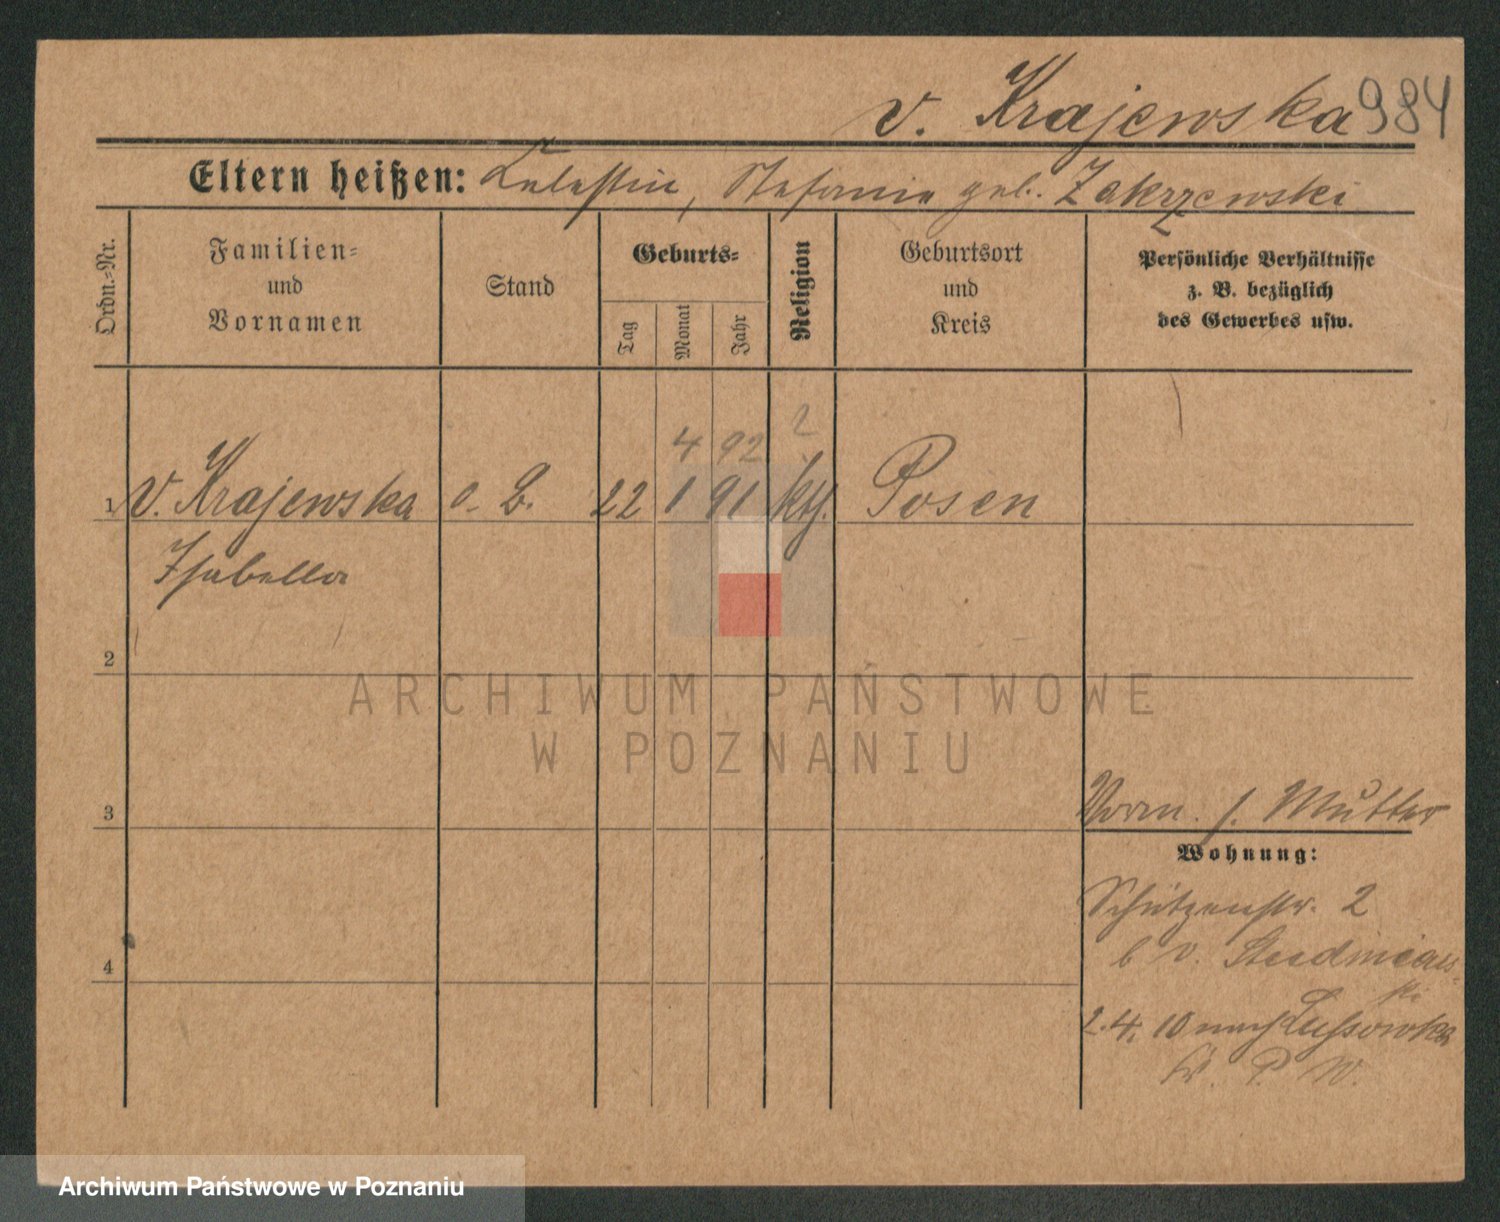 v. Krajewska 984
Eltern heißen: Celestin, Stefanie geb. Zakrzewski
Ordn.-Nr.
Familien-
und
Vornamen
Stand
Geburts-
Tag
Monat
Jahr
Religion
Geburtsort
und
Kreis
Persönliche Verhältnisse
z. B. bezüglich
des Gewerbes usw.
4 92 ?
1 v. Krajewska o. B. 22 1 91 kth. Posen
Isabella
2
ARCHIWUM PAŃSTWOWE
W POZNANIU
3
Vorm. s. Mutter
Wohnung:
Schützenstr. 2
b v. Studniarski
4
2.4.10 nach Lussowko
Kr. P. W.
Archiwum Państwowe w Poznaniu